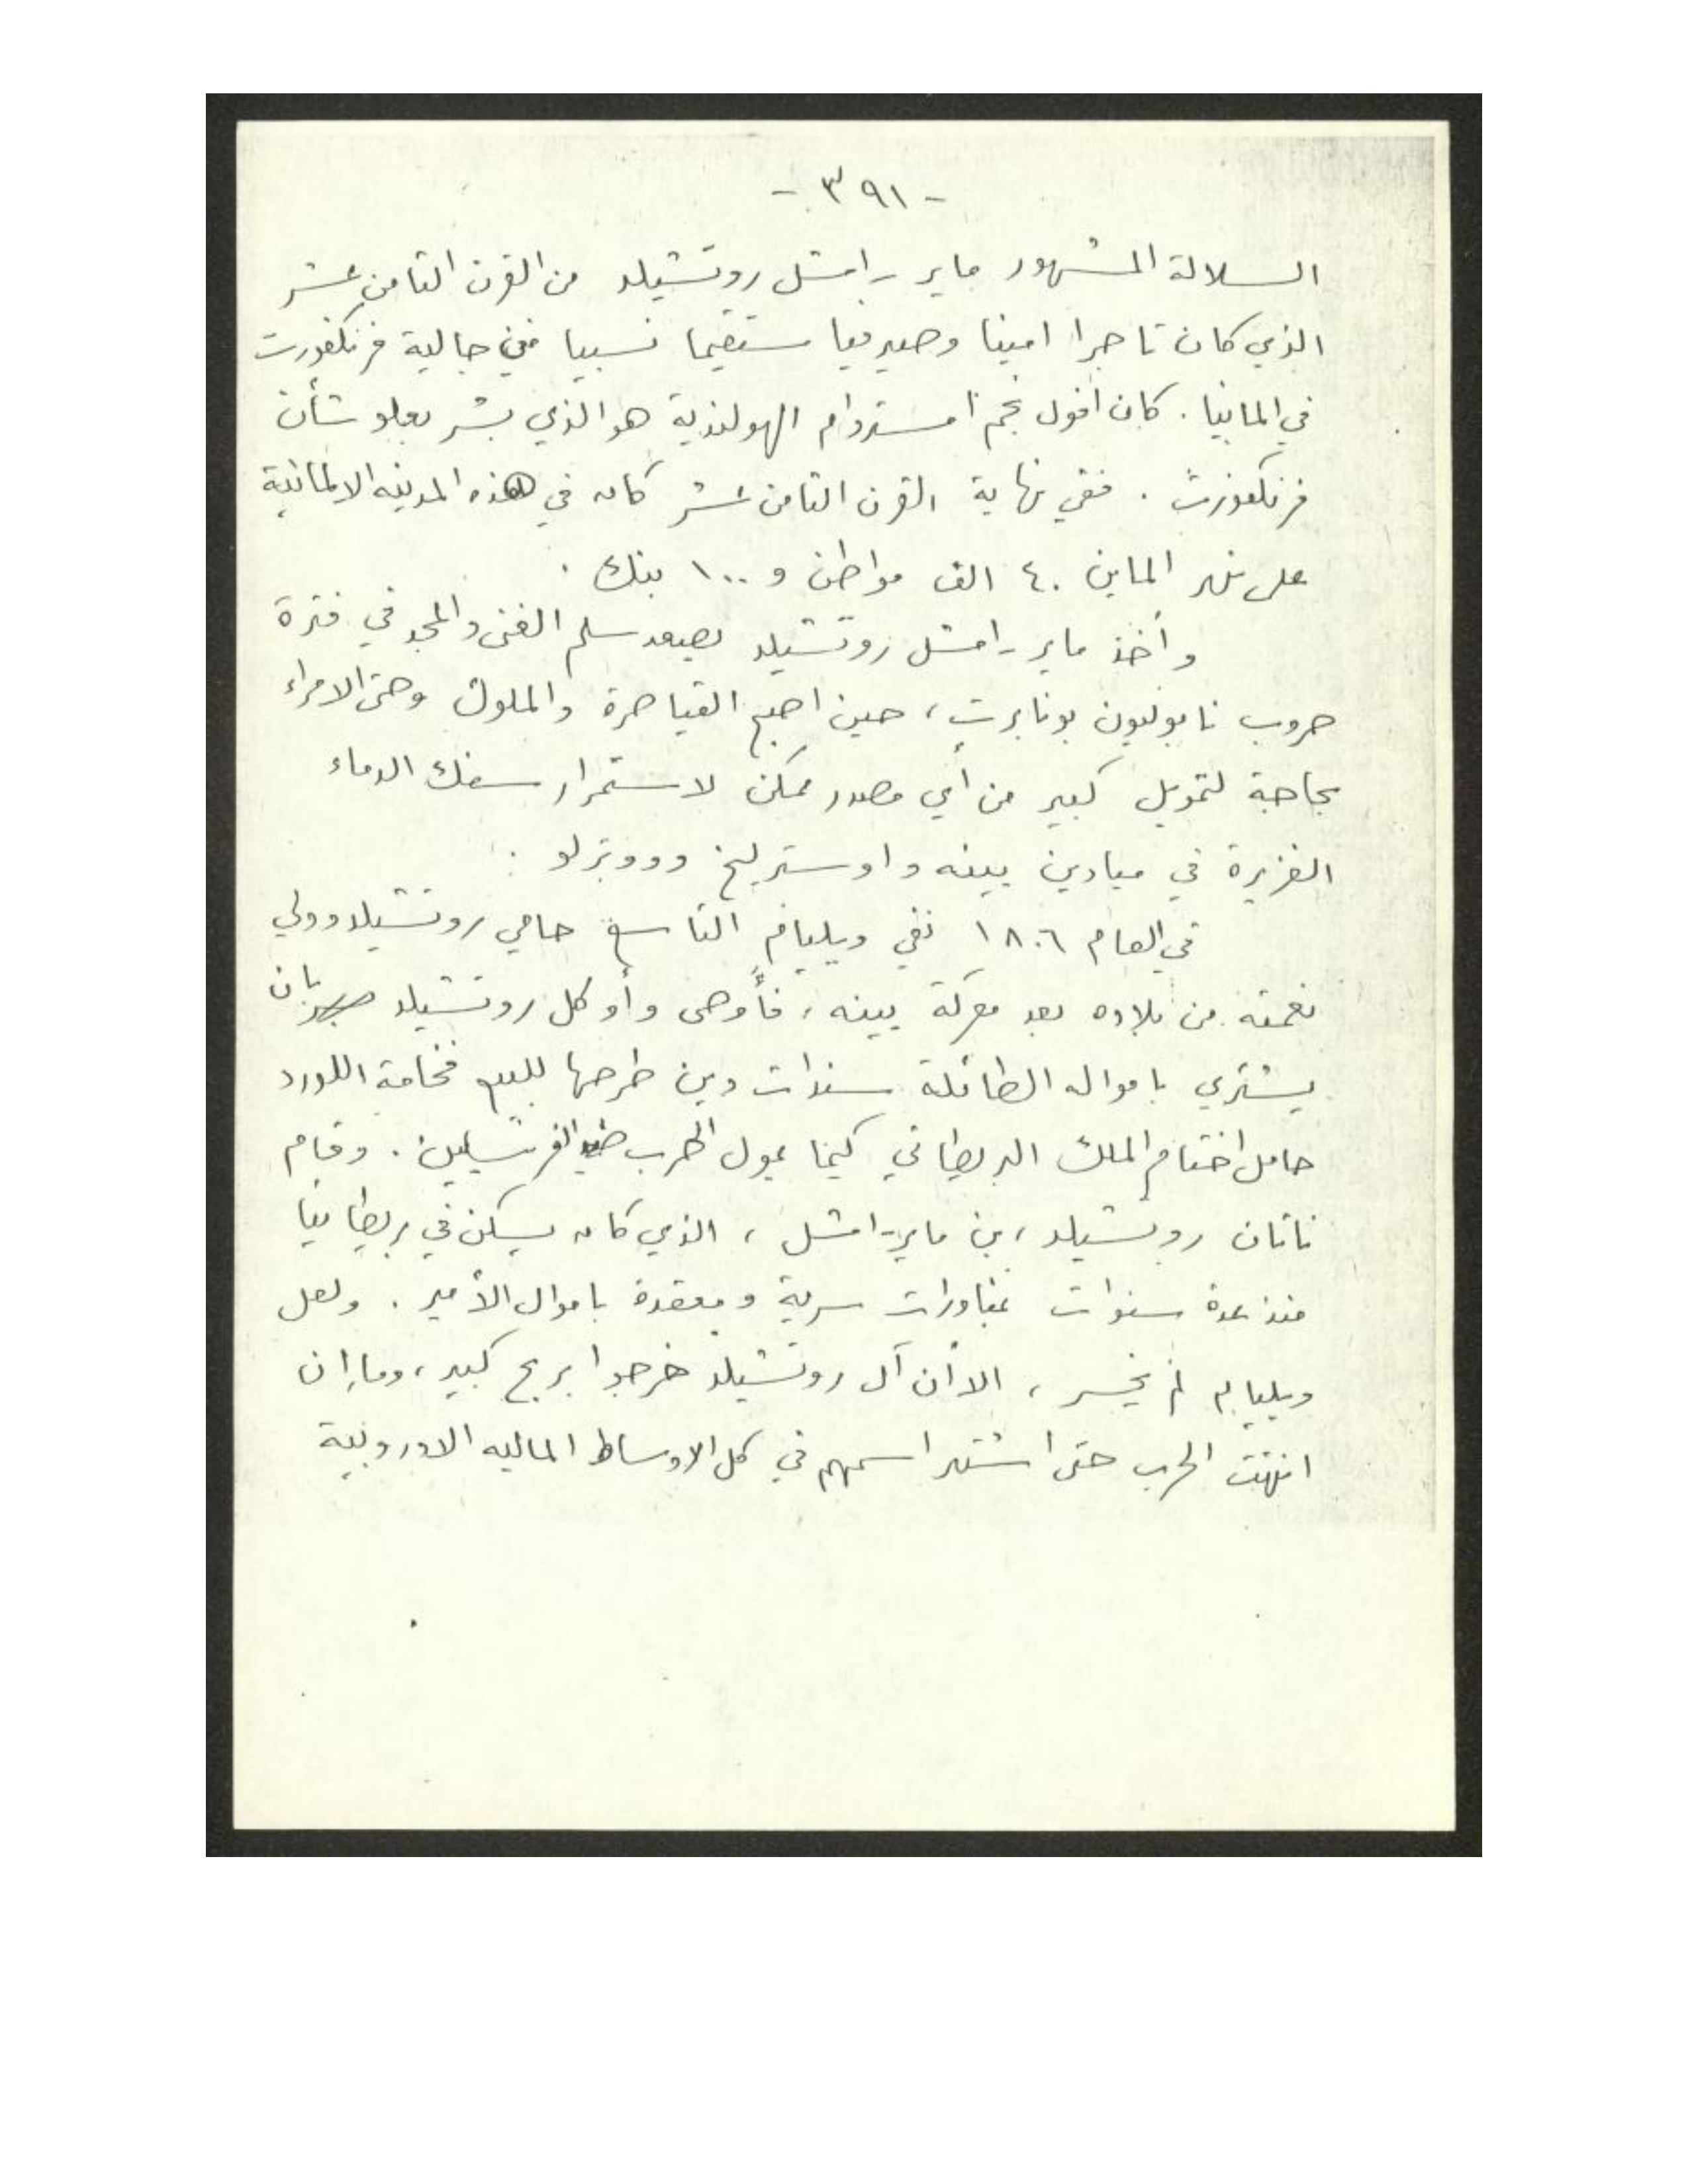 - ٣٩١ -
السلالة المشهور ماير - امشل روتشيلد من القرن الثامن عشر
الذي كان تاجرا امينا وصيرفيا مستقيما نسبيا في جالية فرنكفورت
في المانيا . كان أفول نجم أمستردام الهولندية هو الذي بشر بعلو شأن
فرنكفورت . ففي نهاية القرن الثامن عشر كان في هذه المدينه الالمانية
على نهر الماين ٤٠ الف مواطن و ١٠٠ بنك .
وأخذ ماير - امشل روتشيلد يصعد سلم الغنى والمجد في فترة
حروب نابوليون بونابرت ، حين اصبح القياصرة والملوك وحتى الامراء
بحاجة لتمويل كبير من أي مصدر ممكن لاستمرار سفك الدماء
الغزيرة في ميادين يينه واوسترليخ وووترلو .
في العام ١٨٠٦ نفي ويليام التاسع حامي روتشيلد وولي
نعمته من بلاده بعد معركة يينه ، فأوصى وأوكل روتشيلد بان
يشتري بامواله الطائلة سندات دين طرحها للبيع فخامة اللورد
حامل اختام الملك البريطاني كيما يمول الحرب ضد الفرنسيين . وقام
ناتان روتشيلد ، بن ماير-امشل ، الذي كان يسكن في بريطانيا
منذ عدة سنوات بمناورات سرية ومعقدة باموال الأمير . ولعل
ويليام لم يخسر ، الا أن آل روتشيلد خرجوا بربح كبير ، وما إن
انتهت الحرب حتى اشتهر اسمهم في كل الاوساط الماليه الاوروبية